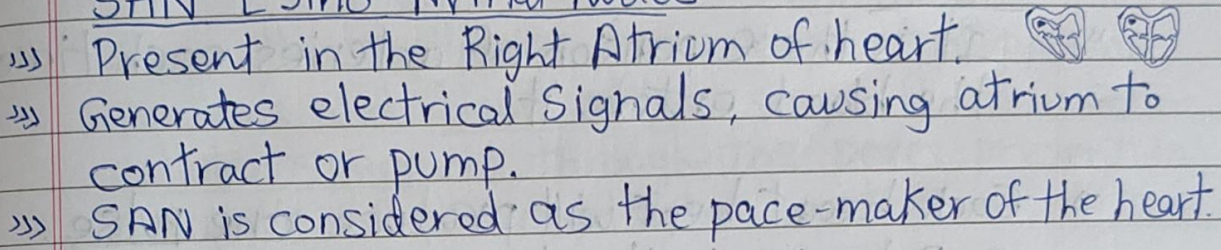 SAN [Sino Atrial Node]
>>> Present in the Right Atrium of heart.
>>> Generates electrical Signals, causing atrium to
contract or pump.
>>> SAN is considered as the pace-maker of the heart.